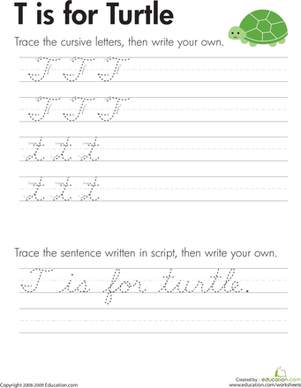 T is for Turtle
Trace the cursive letters, then write your own.
T T T
T T T
t t t
t t t
Trace the sentence written in script, then write your own.
T is for turtle.
Copyright 2008-2009 Education.com
Created by : education.com
www.education.com/worksheets